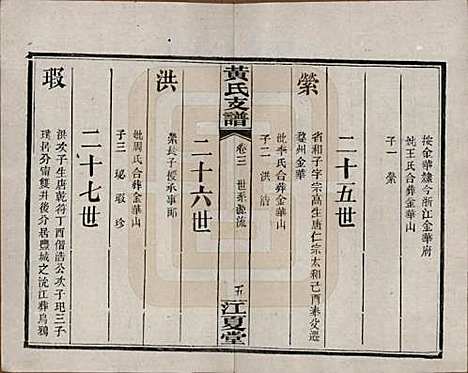 按金華隸今浙江金華府
妣王氏合葬金華山
子一 縈
二十五世
縈
省和子字宗高生唐仁宗太和己酉奉父遷
婺州金華
妣李氏合葬金華山
子二 洪 浩
黃氏支譜
卷三 世系源流
五
江夏堂
二十六世
洪
縈長子授承事郎
妣周氏合葬金華山
子三 珌 瑕 珍
二十七世
瑕
洪次子生唐乾符丁酉偕浩公次子玘三子
璞初分甯雙井後分居豐城之沇江葬烏鴉